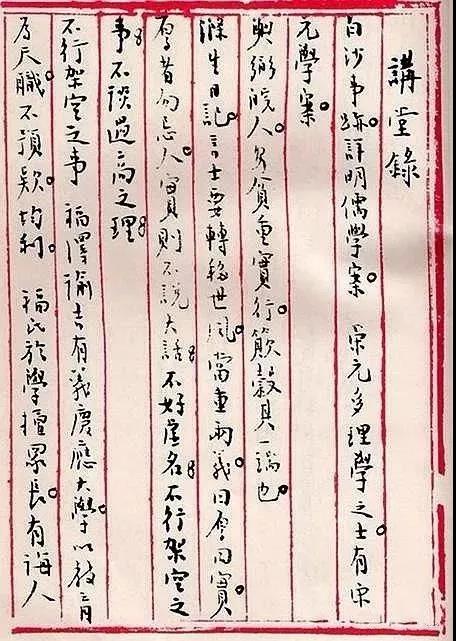 講堂錄
白沙事跡詳明儒學案。宋元多理學之士有宋
元學案。
與弼皖人。貧重實行。穀其一端也。
滌生日記。言士要轉移世風。當重兩義曰厚曰實。
厚者勿忌人實則不說大話。不好虛名。不行架空之
事。不談過高之理。
不行架空之事 福澤諭吉有義慶應大學。以教育
為天職。不利。 福氏於學擅眾長有誨人